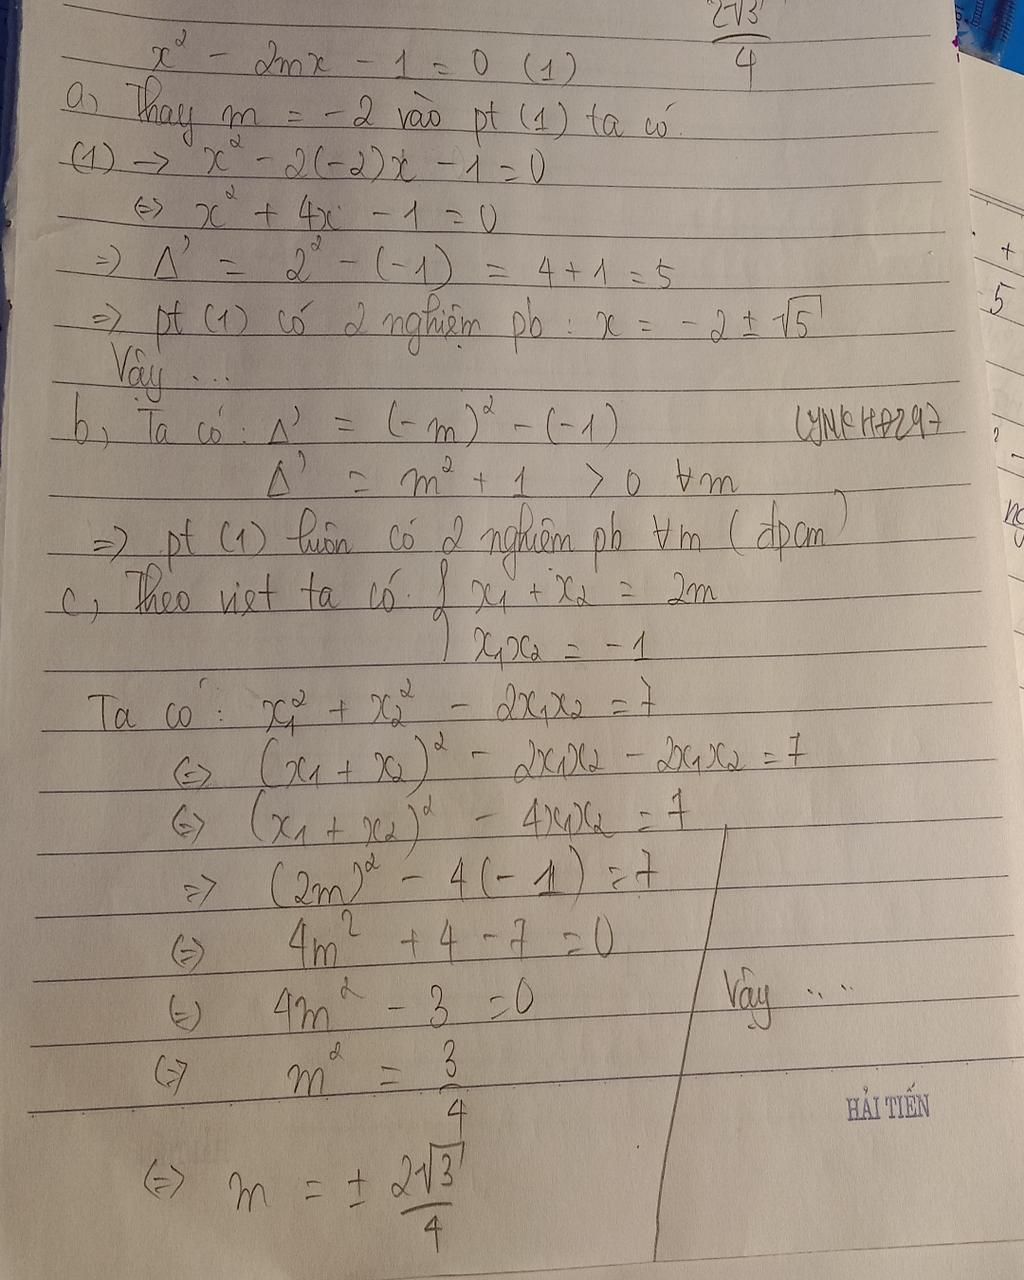 2√3
4
x² - 2mx - 1 = 0 (1)
a, Thay m = -2 vào pt (1) ta có
(1) → x² - 2(-2)x - 1 = 0
⇔ x² + 4x - 1 = 0
⇒ Δ' = 2² - (-1) = 4 + 1 = 5
⇒ pt (1) có 2 nghiệm pb : x = -2 ± √5
Vậy ...
b, Ta có : Δ' = (-m)² - (-1)
Δ' = m² + 1 > 0 ∀m
⇒ pt (1) luôn có 2 nghiệm pb ∀m (đpcm)
c, Theo viet ta có { x₁ + x₂ = 2m
x₁x₂ = -1
Ta có : x₁² + x₂² - 2x₁x₂ = 7
⇔ (x₁ + x₂)² - 2x₁x₂ - 2x₁x₂ = 7
⇔ (x₁ + x₂)² - 4x₁x₂ = 7
⇒ (2m)² - 4(-1) = 7
⇔ 4m² + 4 - 7 = 0
⇔ 4m² - 3 = 0
Vậy ....
⇔ m² = 3/4
HẢI TIẾN
⇔ m = ± 2√3/4
+
5